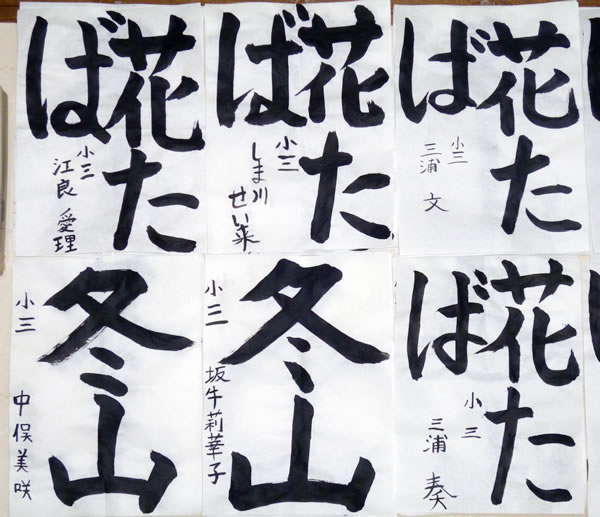 花た
ば
小三
江良 愛理
花た
ば
小三
しま川
せい菜
花た
ば
小三
三浦 文
冬山
小三
中俣美咲
冬山
小二
坂牛莉華子
花た
ば
小三
三浦 奏